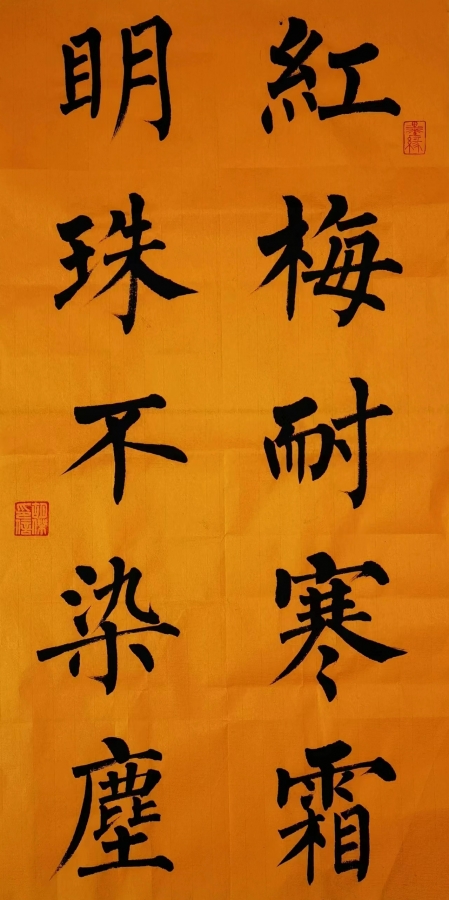 紅梅耐寒霜
眀珠不染塵